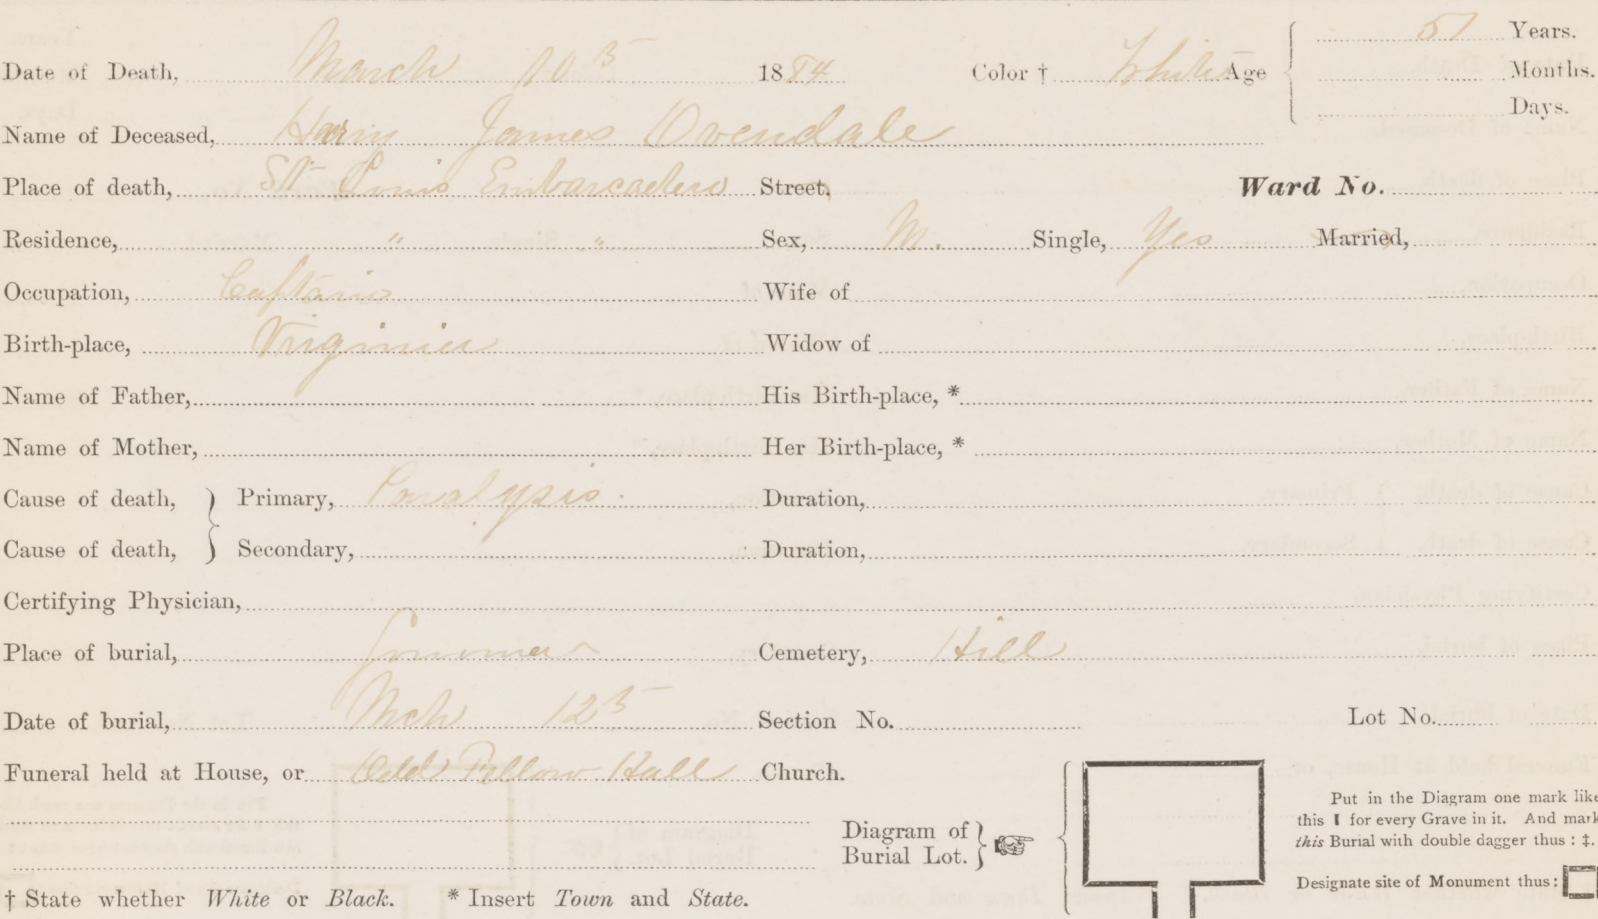 51 Years.
Date of Death, March 10th 1884 Color † White Age Months.
Days.
Name of Deceased, Harry James Ovendale
Place of death, St Louis Embarcadero Street, Ward No.
Residence, " " Sex, M. Single, Yes Married,
Occupation, Captain Wife of
Birth-place, Virginia Widow of
Name of Father, His Birth-place, *
Name of Mother, Her Birth-place, *
Cause of death, } Primary, Paralysis. Duration,
Cause of death, } Secondary, Duration,
Certifying Physician,
Place of burial, Sonoma Cemetery, Hill
Date of burial, Mch 12th Section No. Lot No.
Funeral held at House, or Odd Fellow Hall Church.
Put in the Diagram one mark like
this ❙ for every Grave in it. And mark
this Burial with double dagger thus : ‡.
Diagram of
Burial Lot. } ☞
Designate site of Monument thus :
† State whether White or Black. * Insert Town and State.